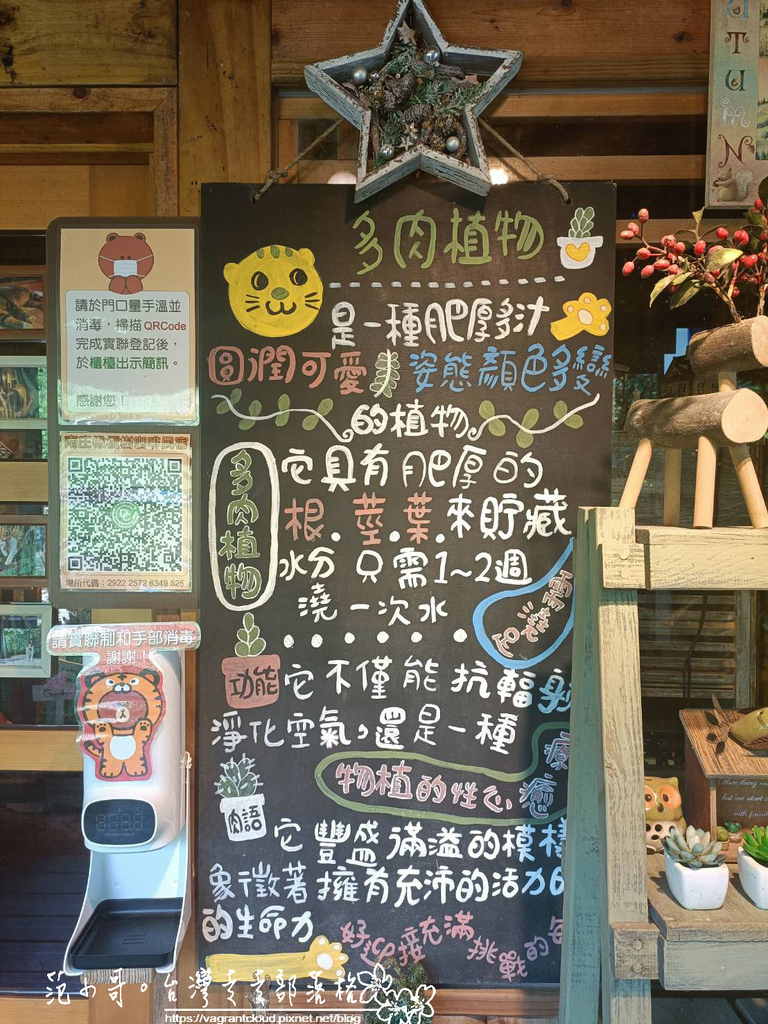 UTUMN
多肉植物
是一種肥厚多汁
圓潤可愛 姿態顏色多變
的植物
多肉植物
它具有肥厚的
根.莖.葉.來貯藏
水分 只需1~2週
澆一次水
功能
它不僅能抗輻射
淨化空氣,還是一種
療癒
物植的性心
肉語
它豐盛滿溢的模樣
象徵著擁有充沛的活力
的生命力
好迎接充滿
挑戰的每
請於門口量手溫並
消毒,掃描QRCode
完成實聯登記後,
於櫃檯出示簡訊。
感謝您!
場所代碼:2922 2572 6349 525
請實聯制和手部消毒
謝謝!
范小哥。台灣走走部落格
https://vagrantcloud.pixnet.net/blog